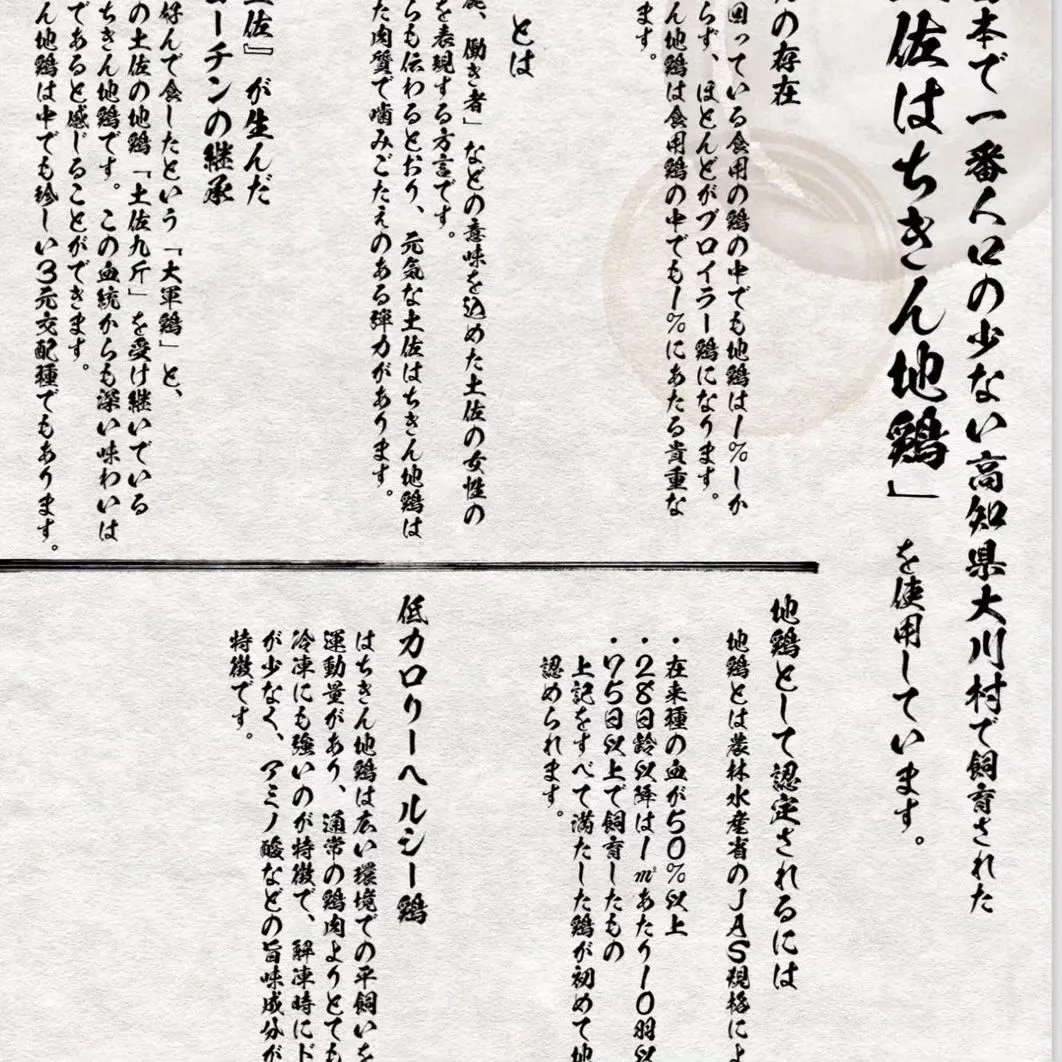 本で一番人口の少ない高知県大川村で飼育された
佐はちきん地鶏」を使用しています。
の存在
回っている食用の鶏の中でも地鶏は1%しか
らず、ほとんどがブロイラー鶏になります。
ん地鶏は食用鶏の中でも1%にあたる貴重な
ます。
とは
、働き者」などの意味を込めた土佐の女性の
を表現する方言です。
らも伝わるとおり、元気な土佐はちきん地鶏は
た肉質で噛みごたえのある弾力があります。
土佐』が生んだ
ーチンの継承
好んで食したという「大軍鶏」と、
の土佐の地鶏「土佐九斤」を受け継いでいる
ちきん地鶏です。この血統からも深い味わいは
であると感じることができます。
ん地鶏は中でも珍しい3元交配種でもあります。
地鶏として認定されるには
地鶏とは農林水産省のJAS規格によ
・在来種の血が50%以上
・28日齢以降は1㎡あたり10羽以
・75日以上で飼育したもの
上記をすべて満たした鶏が初めて地
認められます。
低カロリーヘルシー鶏
はちきん地鶏は広い環境での平飼いを
運動量があり、通常の鶏肉よりとても
冷凍にも強いのが特徴で、解凍時にド
が少なく、アミノ酸などの旨味成分が
特徴です。